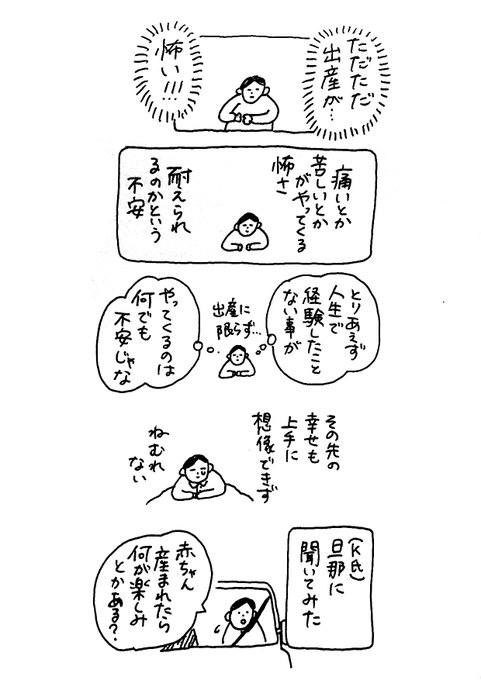 ただただ
出産が…
怖い!!!
痛いとか
苦しいとか
がやってくる
怖さ
耐えられ
るのかという
不安
とりあえず
人生で
経験したこと
ない事が
出産に
限らず…
やってくるのは
何でも
不安じゃな
その先の
幸せも
上手に
想像できず
ねむれ
ない
(K氏)
旦那に
聞いてみた
赤ちゃん
産まれたら
何が楽しみ
とかある?